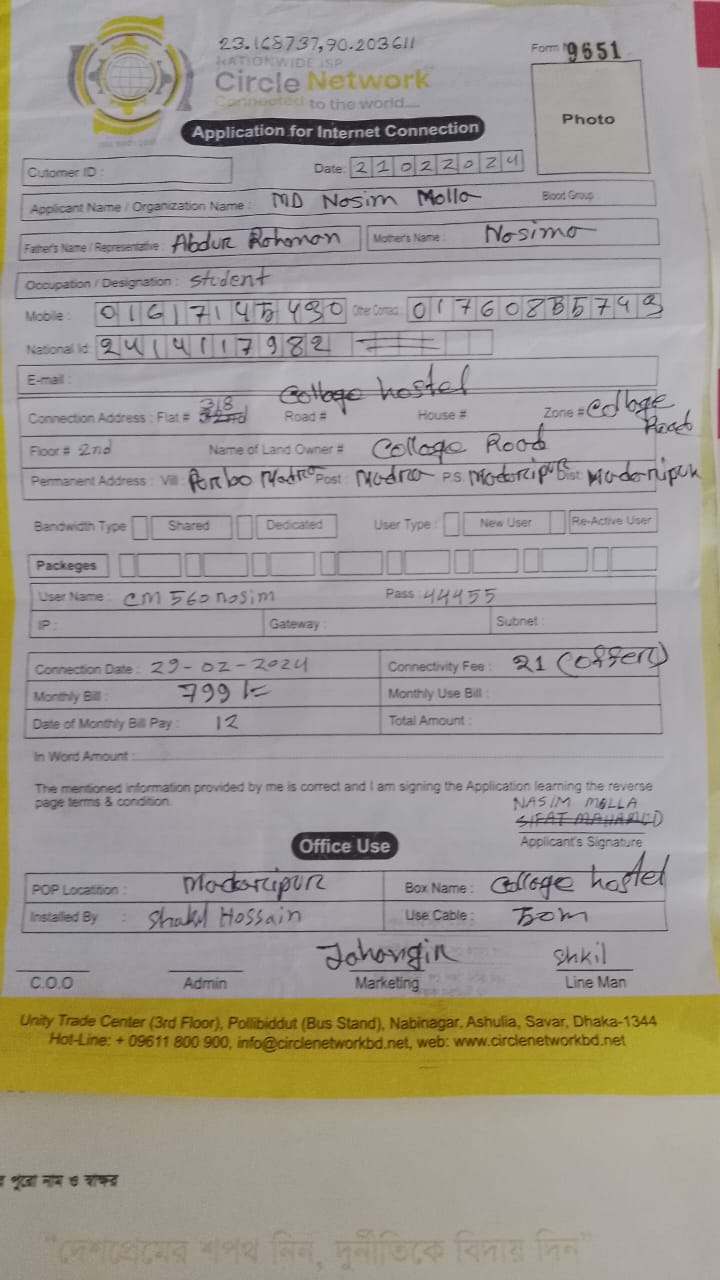 23.168737,90.203611
Form № 9651
NATIONWIDE ISP
Circle Network
Connected to the world....
Photo
Application for Internet Connection
Cutomer ID :
Date: 21022024
Applicant Name / Organization Name : MD Nosim Molla Blood Group
Father's Name / Representative : Abdur Rohmon Mother's Name : Nosimo
Occupation / Designation : student
Mobile : 01617145430 Other Contact: 01760835743
National Id: 2414117982
E-mail :
College hostel
Connection Address : Flat # 318 Road # House # Zone # College Road
Floor # 2nd Name of Land Owner # College Rood
Permanent Address : Vill : Porbo Madra Post : Madra P.S. Madaripur Dist: Madaripur
Bandwidth Type Shared Dedicated User Type : New User Re-Active User
Packeges
User Name : cm560nosim Pass : 44455
IP : Gateway : Subnet :
Connection Date : 29-02-2024 Connectivity Fee : 21 (offer)
Monthly Bill : 799 Monthly Use Bill :
Date of Monthly Bill Pay : 12 Total Amount :
In Word Amount :
The mentioned information provided by me is correct and I am signing the Application learning the reverse
page terms & condition.
NASIM MOLLA
Applicant's Signature
Office Use
POP Locatition : Madaripur Box Name : College hostel
Installed By : Shakil Hossain Use Cable : 50m
Jahangir Shkil
C.O.O Admin Marketing Line Man
Unity Trade Center (3rd Floor), Pollibiddut (Bus Stand), Nabinagar, Ashulia, Savar, Dhaka-1344
Hot-Line: + 09611 800 900, info@circlenetworkbd.net, web: www.circlenetworkbd.net
পুরো নাম ও স্বাক্ষর
"দেশপ্রেমের শপথ নিন, দুর্নীতিকে বিদায় দিন"